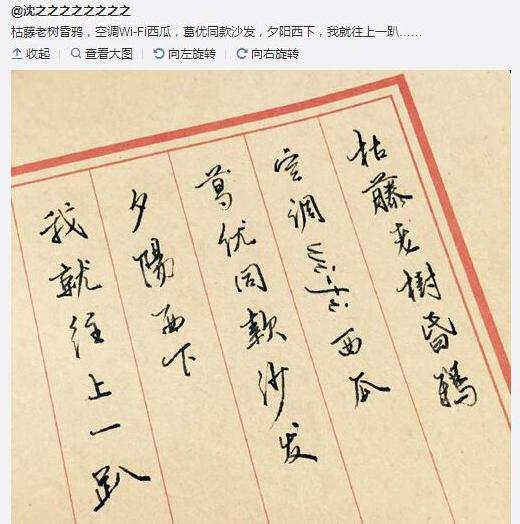 @沈之之之之之之之之
枯藤老树昏鸦，空调Wi-Fi西瓜，葛优同款沙发，夕阳西下，我就往上一趴……
收起 查看大图 向左旋转 向右旋转
枯藤老樹昏鴉
空调wifi西瓜
葛优同款沙发
夕陽西下
我就往上一趴